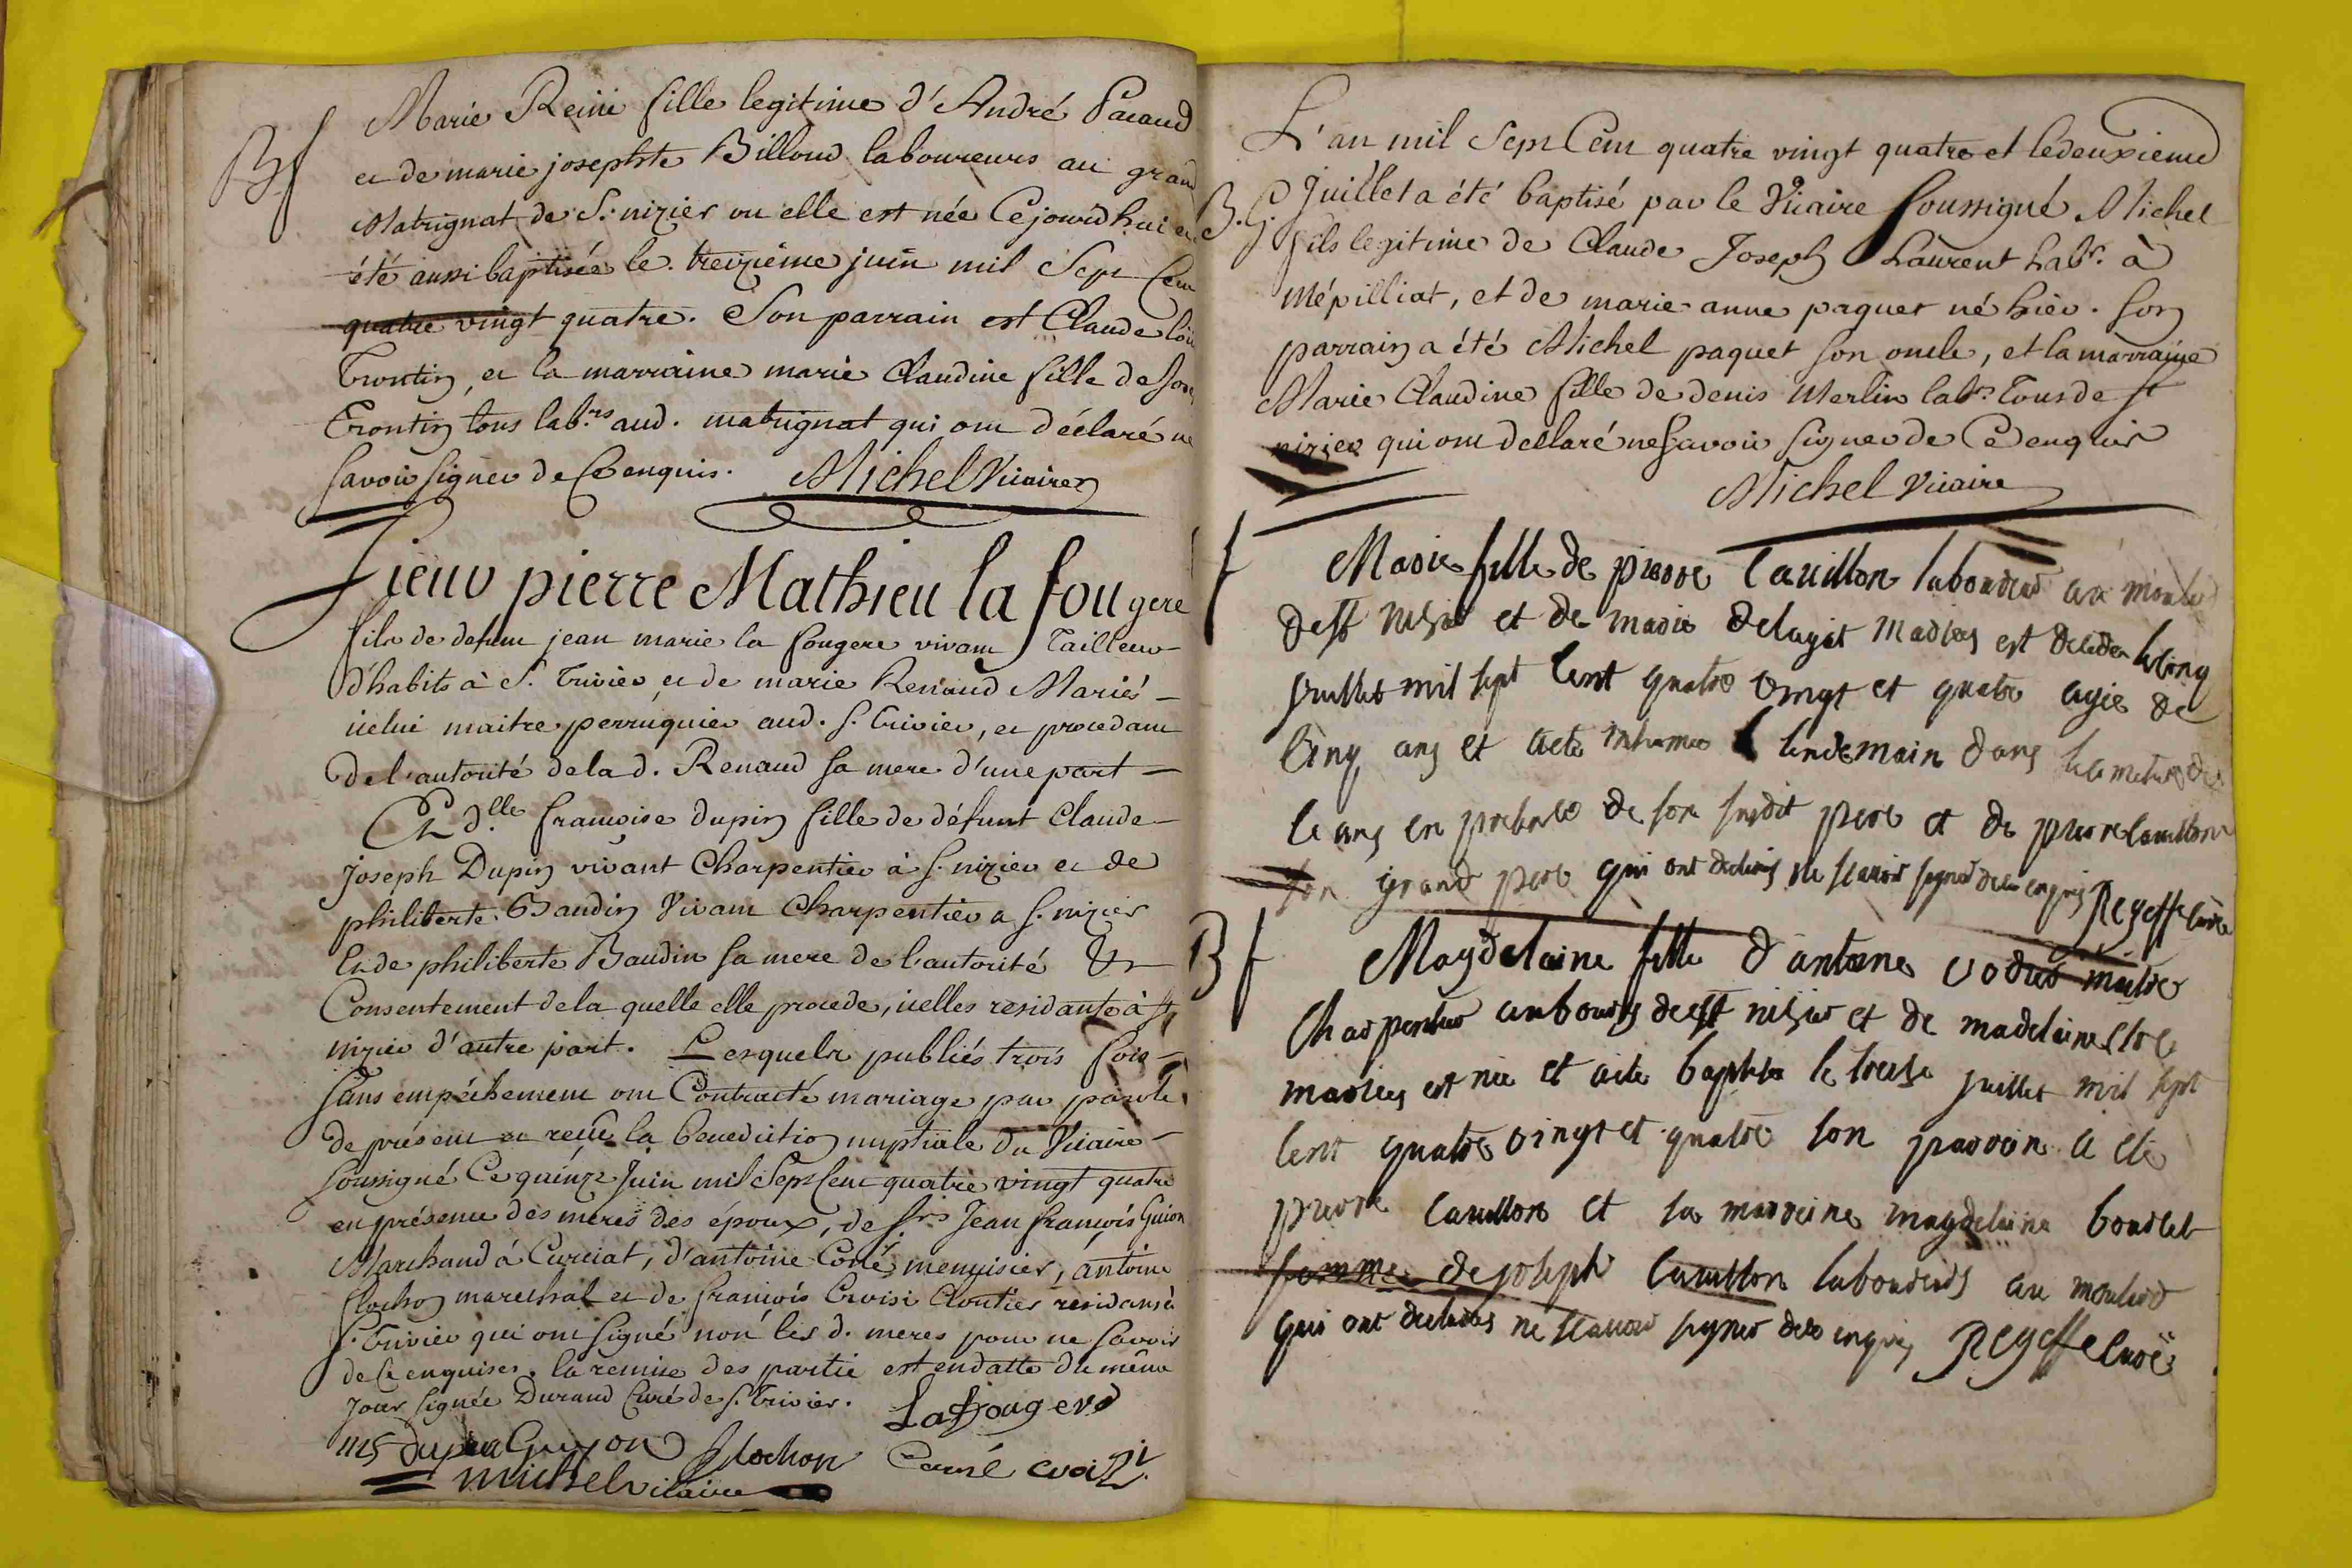 Bf
Marie Reine fille legitime d'André Pacaud
et de marie josephte Billoud laboureurs au grand
Matrignat de S. nizier ou elle est née Cejourd'hui et
été aussi baptisée le treizième juin mil Sept Cent
quatre vingt quatre. Son parrain est Claude
Trontin, et la marraine marie Claudine fille de
Trontin tous lab.rs aud. matrignat qui ont déclaré ne
Savoir Signer de Ce enquis. Michel Vicaire
Sieur pierre Mathieu la fougere
fils de defunt jean marie la fougere vivant Tailleur
d'habits à S. Trivier et de marie Renaud Mariés
icelui maitre perruquier aud. S. Trivier, et procedant
de l'autorité de la d. Renaud Sa mere d'une part
Et d.lle françoise dupin fille de défunt Claude
Joseph Dupin vivant Charpentier à S. nizier et de
philiberte Baudin Vivant Charpentier a S. nizier
Et de philiberte Baudin Sa mere de l'autorité Et
Consentement de la quelle elle procede, icelles residante à St
nizier d'autre part. Lesquels publiés trois fois
Sans empéchement ont Contracté mariage par parole
de présent et reçu la Benediction nuptiale du Vicaire
Soussigné Ce quinze Juin mil Sept Cent quatre vingt quatre
en présence des meres des époux, de Srs Jean françois Guion
Marchand à Curciat, d'antoine Corré menuisier, antoine
flochon marechal et de françois Croisi Cloutier residans à
S. Trivier qui ont Signé non les d. meres pour ne Savoir
de Ce enquises. la remise des partie est en datte du même
Jour Signée Durand Curé de S. Trivier. Lafougere
dupin Guyon flochon Corré croizi
michel vicaire
L'an mil Sept Cent quatre vingt quatre et le deuxieme
B.G. Juillet a été baptisé par le Vicaire Soussigné Michel
fils legitime de Claude Joseph Laurent labr. à
Mépilliat, et de marie anne paquet né hier. Son
parrain a été Michel paquet Son oncle, et la marraine
Marie Claudine fille de denis Merlin labr. Tous de St
nizier qui ont déclaré ne Savoir Signer de Ce enquis
Michel Vicaire
f
Marie fille de pierre Cavillon laboureur au
de st nisier et de marie delayat maries est decedee le cinq
juillet mil sept cent quatre vingt et quatre agée de
cinq ans et aeté inhumee l lendemain dans le cimetiere de
ceans en presence de son susdit pere et de pierre Cavillon
son grand pere qui ont declarés ne scavoir signer de ce enquis Regeffe curé
Bf
Magdelaine fille d'antoine vodies maitre
charpentier au bourg de st nisier et de madelaine
maries est née et aété baptisée le treise juillet mil sept
cent quatre vingt et quatre son parrein a eté
pierre Cavillon et sa marreine magdelaine bourlet
femme de joseph Cavillon laboureurs au
qui ont declarés ne scavoir signer de ce enquis Regeffe curé